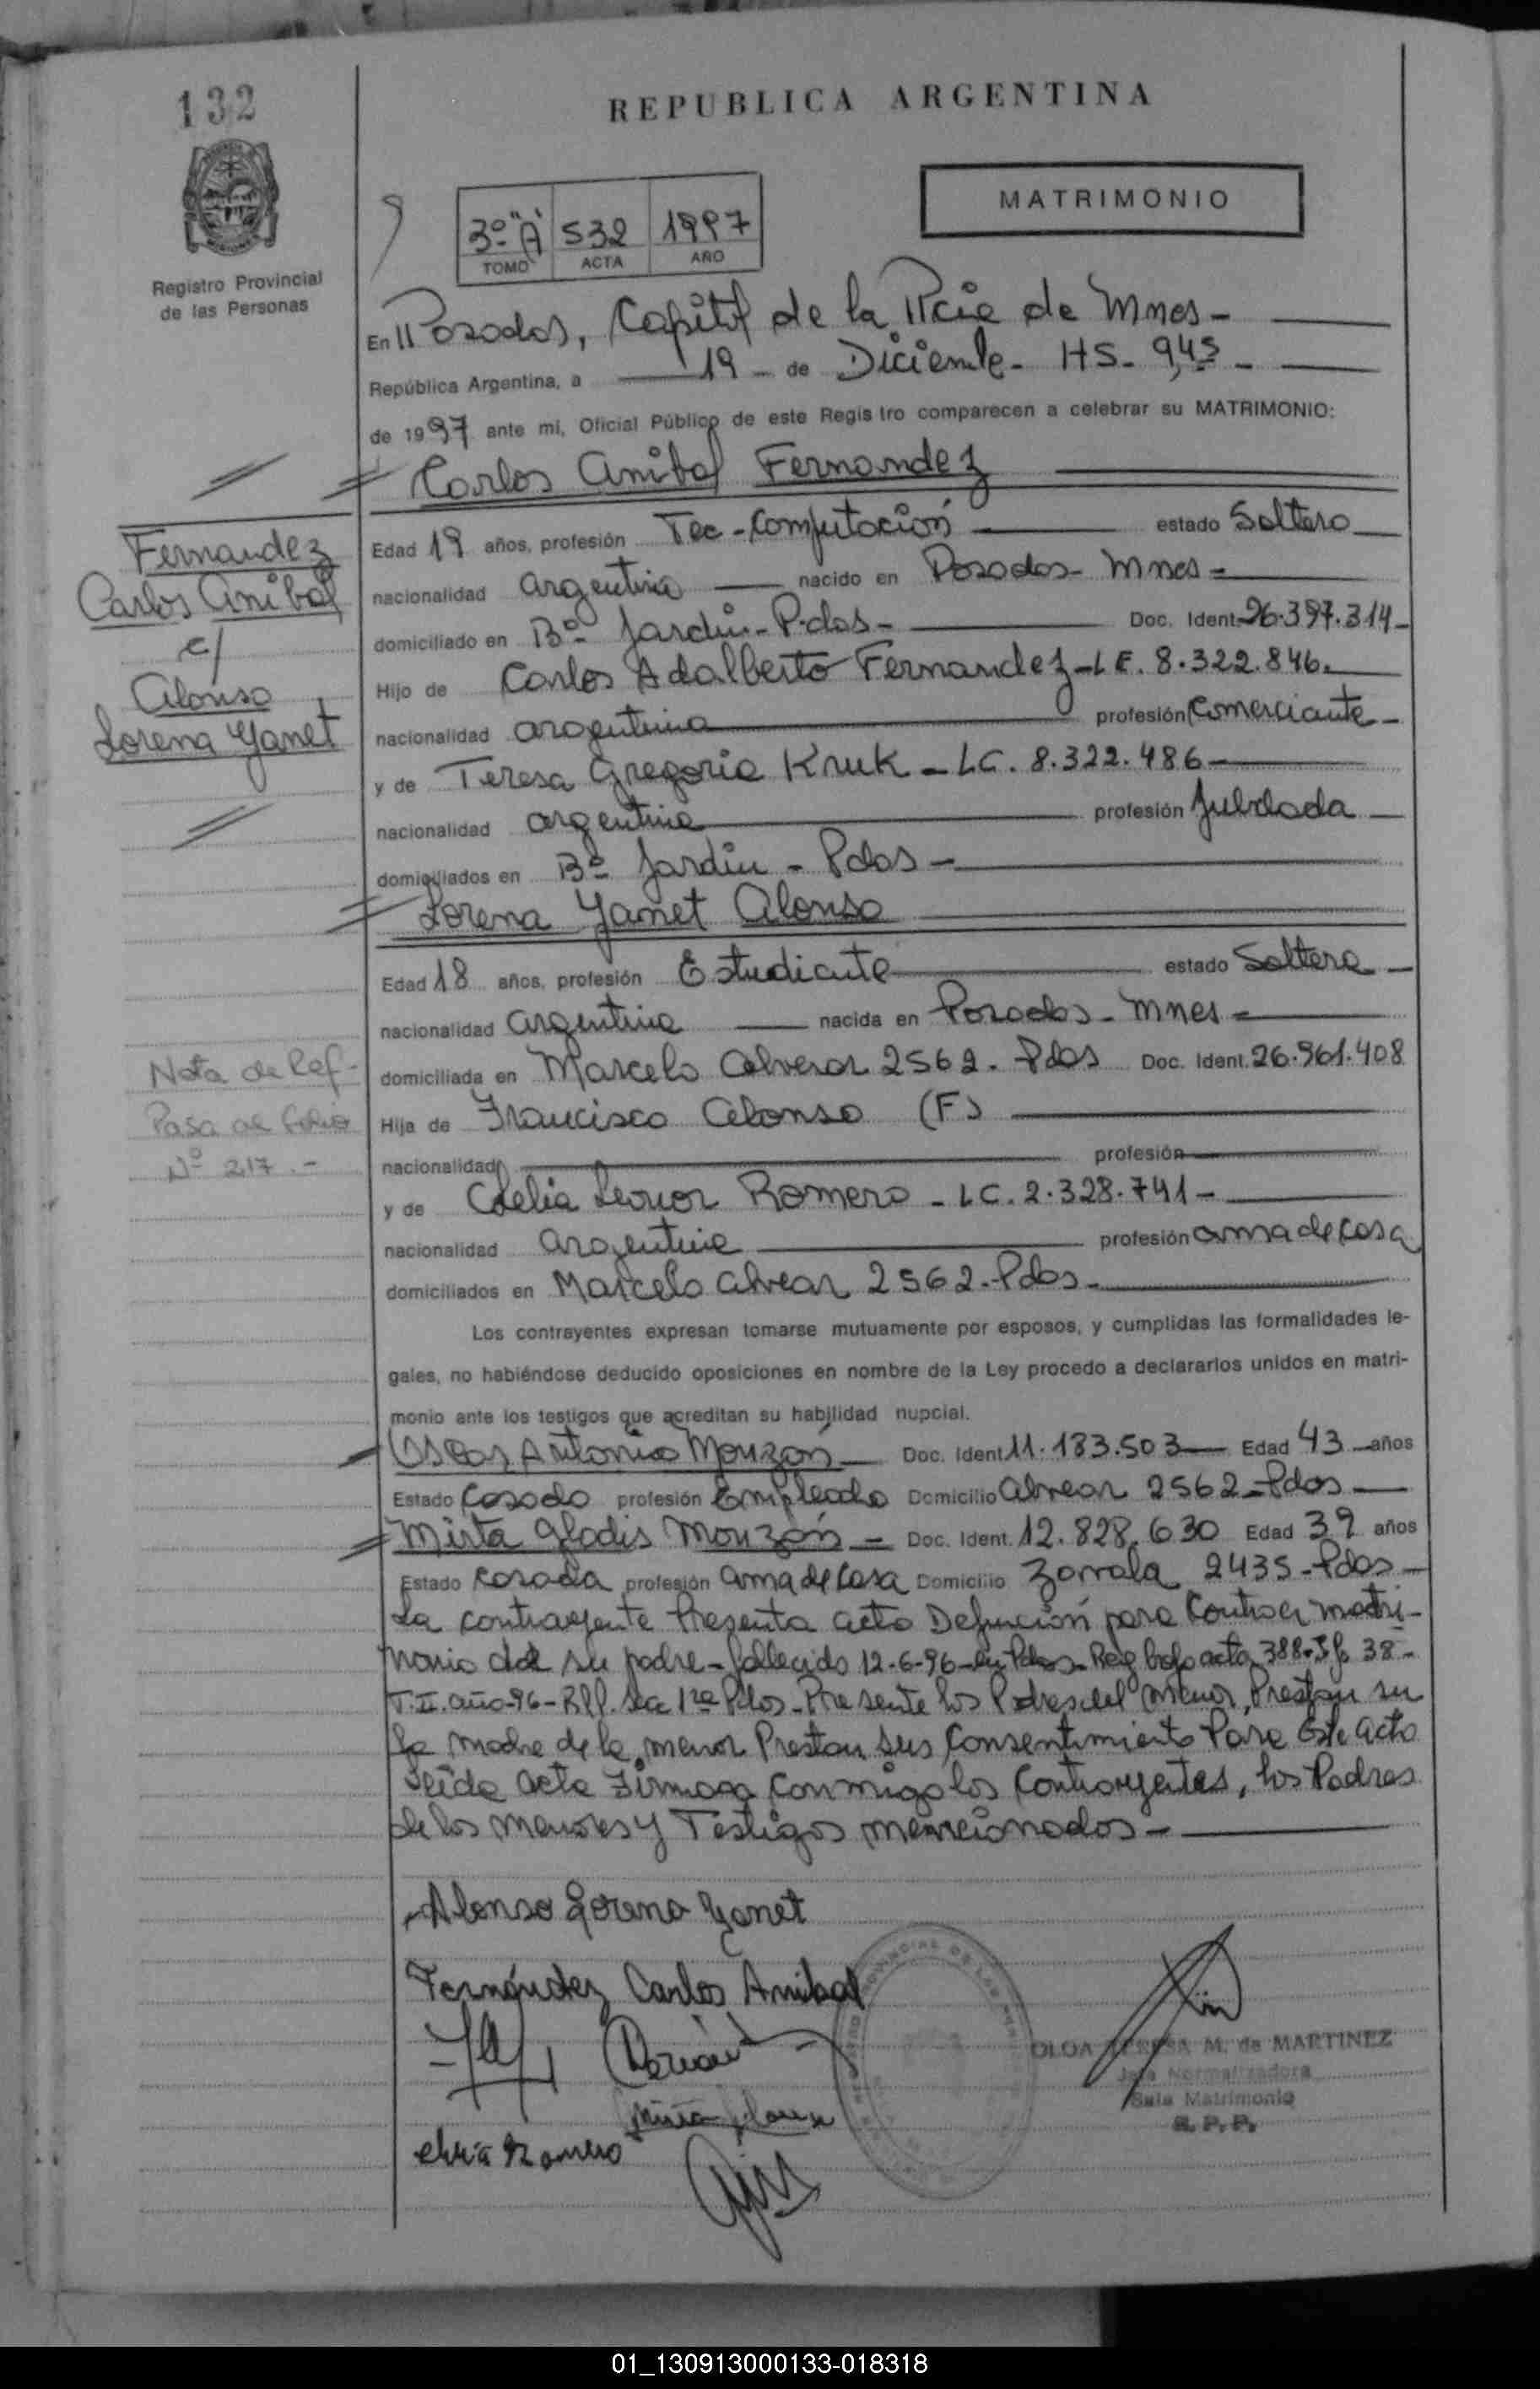 132
REPUBLICA ARGENTINA
MATRIMONIO
3º "A" 532 1997
TOMO ACTA AÑO
Registro Provincial
de las Personas
En Posadas, Capital de la Pcia de Mnes -
República Argentina, a 19 - de Diciembre - HS - 9,45 -
de 1997 ante mi, Oficial Público de este Registro comparecen a celebrar su MATRIMONIO:
Carlos Anibal Fernandez
Edad 19 años, profesión Tec - Computación estado Soltero
nacionalidad argentina nacido en Posadas - Mnes -
domiciliado en Bº Jardin - Pdas - Doc. Ident. 26.397.314 -
Hijo de Carlos Adalberto Fernandez - LE. 8.322.846.
nacionalidad argentina profesión Comerciante -
y de Teresa Gregoria Kruk - LC. 8.322.486 -
nacionalidad argentina profesión Jubilada
domiciliados en Bº Jardin - Pdas -
Lorena Yanet Alonso
Edad 18 años, profesión Estudiante estado Soltera -
nacionalidad argentina nacida en Posadas - Mnes -
domiciliada en Marcelo Alvear 2562 - Pdas Doc. Ident. 26.961.408
Hija de Francisco Alonso (F)
nacionalidad profesión
y de Clelia Leonor Romero - LC. 2.328.741 -
nacionalidad argentina profesión ama de casa
domiciliados en Marcelo Alvear 2562 - Pdas -
Los contrayentes expresan tomarse mutuamente por esposos, y cumplidas las formalidades le-
gales, no habiéndose deducido oposiciones en nombre de la Ley procedo a declararlos unidos en matri-
monio ante los testigos que acreditan su habilidad nupcial.
Oscar Antonio Monzón Doc. Ident 11.183.503 Edad 43 años
Estado Casado profesión Empleado Domicilio Alvear 2562 - Pdas
Mirta Gladis Monzón - Doc. Ident. 12.828.630 Edad 39 años
Estado Casada profesión ama de casa Domicilio Zarrala 2435 - Pdas -
La contrayente Presenta acta Defunción para Contraer matri-
monio de su padre - fallecido 12-6-96 - en Pdas - Reg bajo acta 388 - Fº 38 -
T. II. año - 96 - Sec 1ra Pdas - Presente los Padres del menor, Prestan su
la madre de la menor Prestan sus Consentimiento Para Este acto
Leida acta Firman conmigo los Contrayentes, los Padres
de los menores y Testigos mencionados -
Fernandez
Carlos Anibal
c/
Alonso
Lorena Yanet
Nota de Ref -
Pasa al folio
Nº 217.-
Alonso Lorena Yanet
Fernández Carlos Anibal
Romero
OLGA TERESA M. de MARTINEZ
Jefa Normalizadora
Sala Matrimonio
R. P. P.
01_130913000133-018318